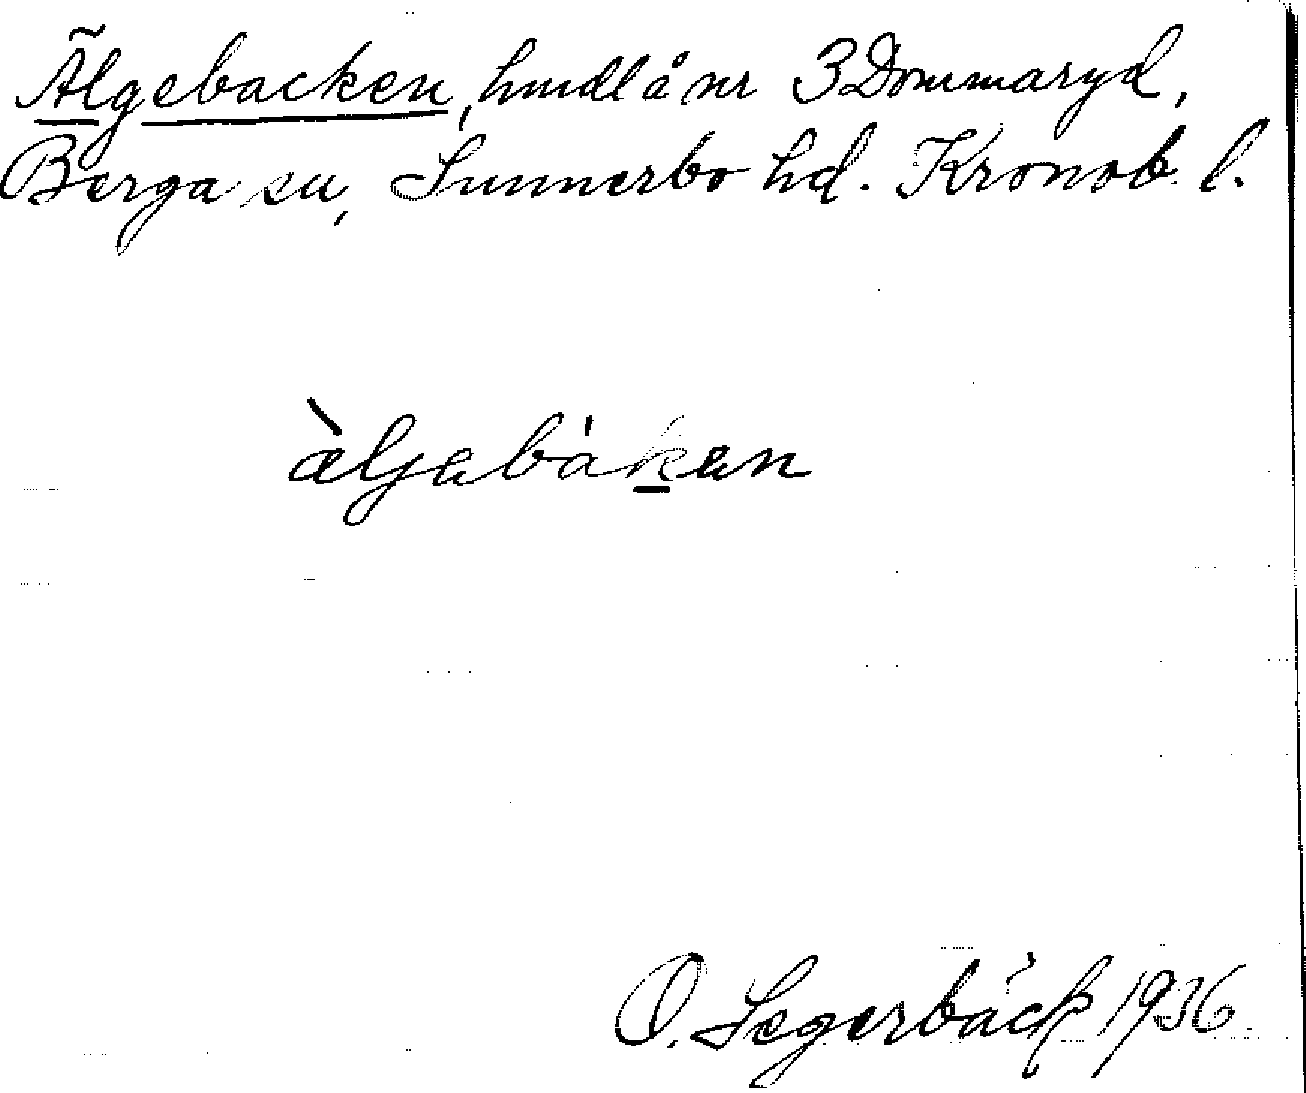 Älgebacken, hmdl å nr 3 Dommaryd,
Berga sn, Sunnerbo hd. Kronob. l.
æ̀ljabákan
O. Segerbäck 1936